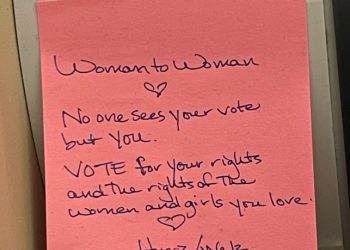 Woman to Woman
No one sees your vote
but you.
VOTE for your rights
and the rights of the
women and girls you love.